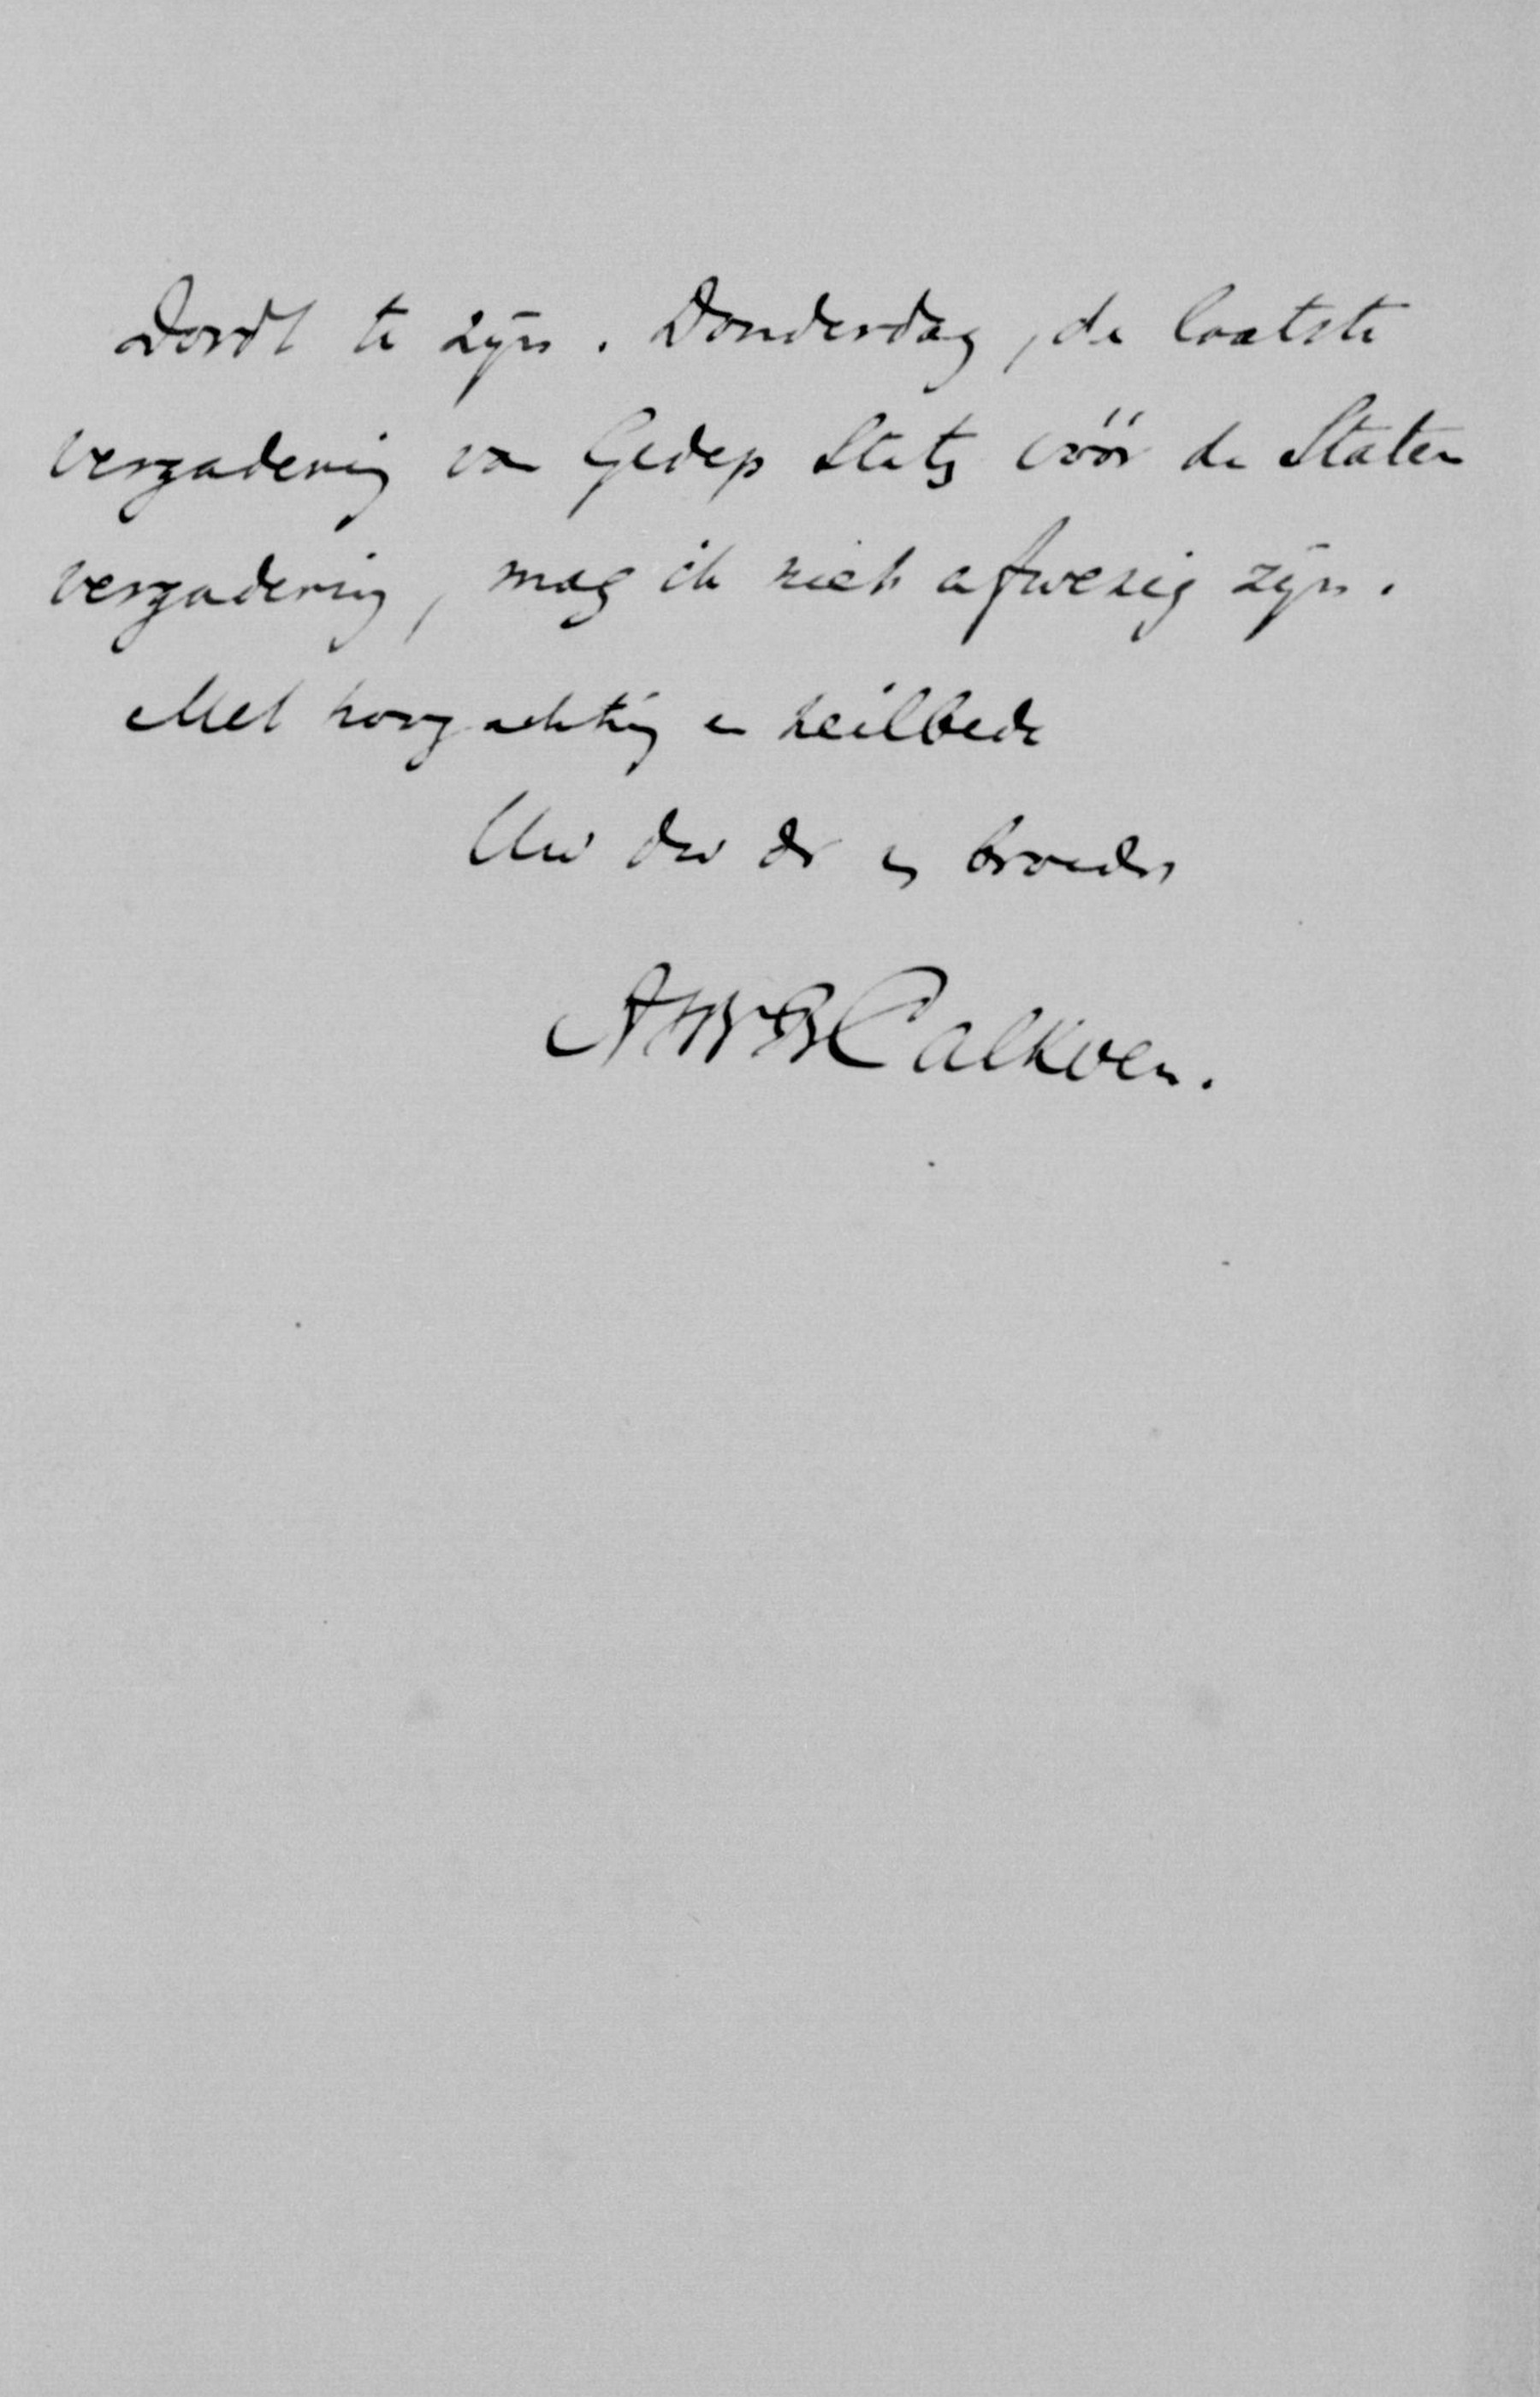 Dordt te zijn. Donderdag, de laatste
vergadering van Gedep Staten vóór de Staten
vergadering, mag ik niet afwezig zijn.
Met hoogachting en heilbede
Uw dw dr en broeder
Calkoen.